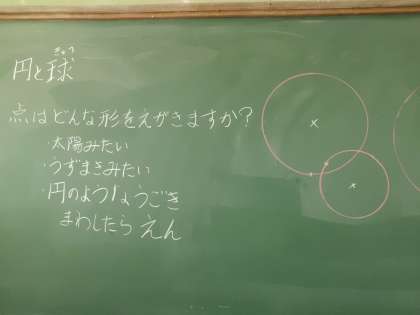 円と球
きゅう
点はどんな形をえがきますか?
・太陽みたい
・うずまきみたい
・円のようなうごき
まわしたら えん